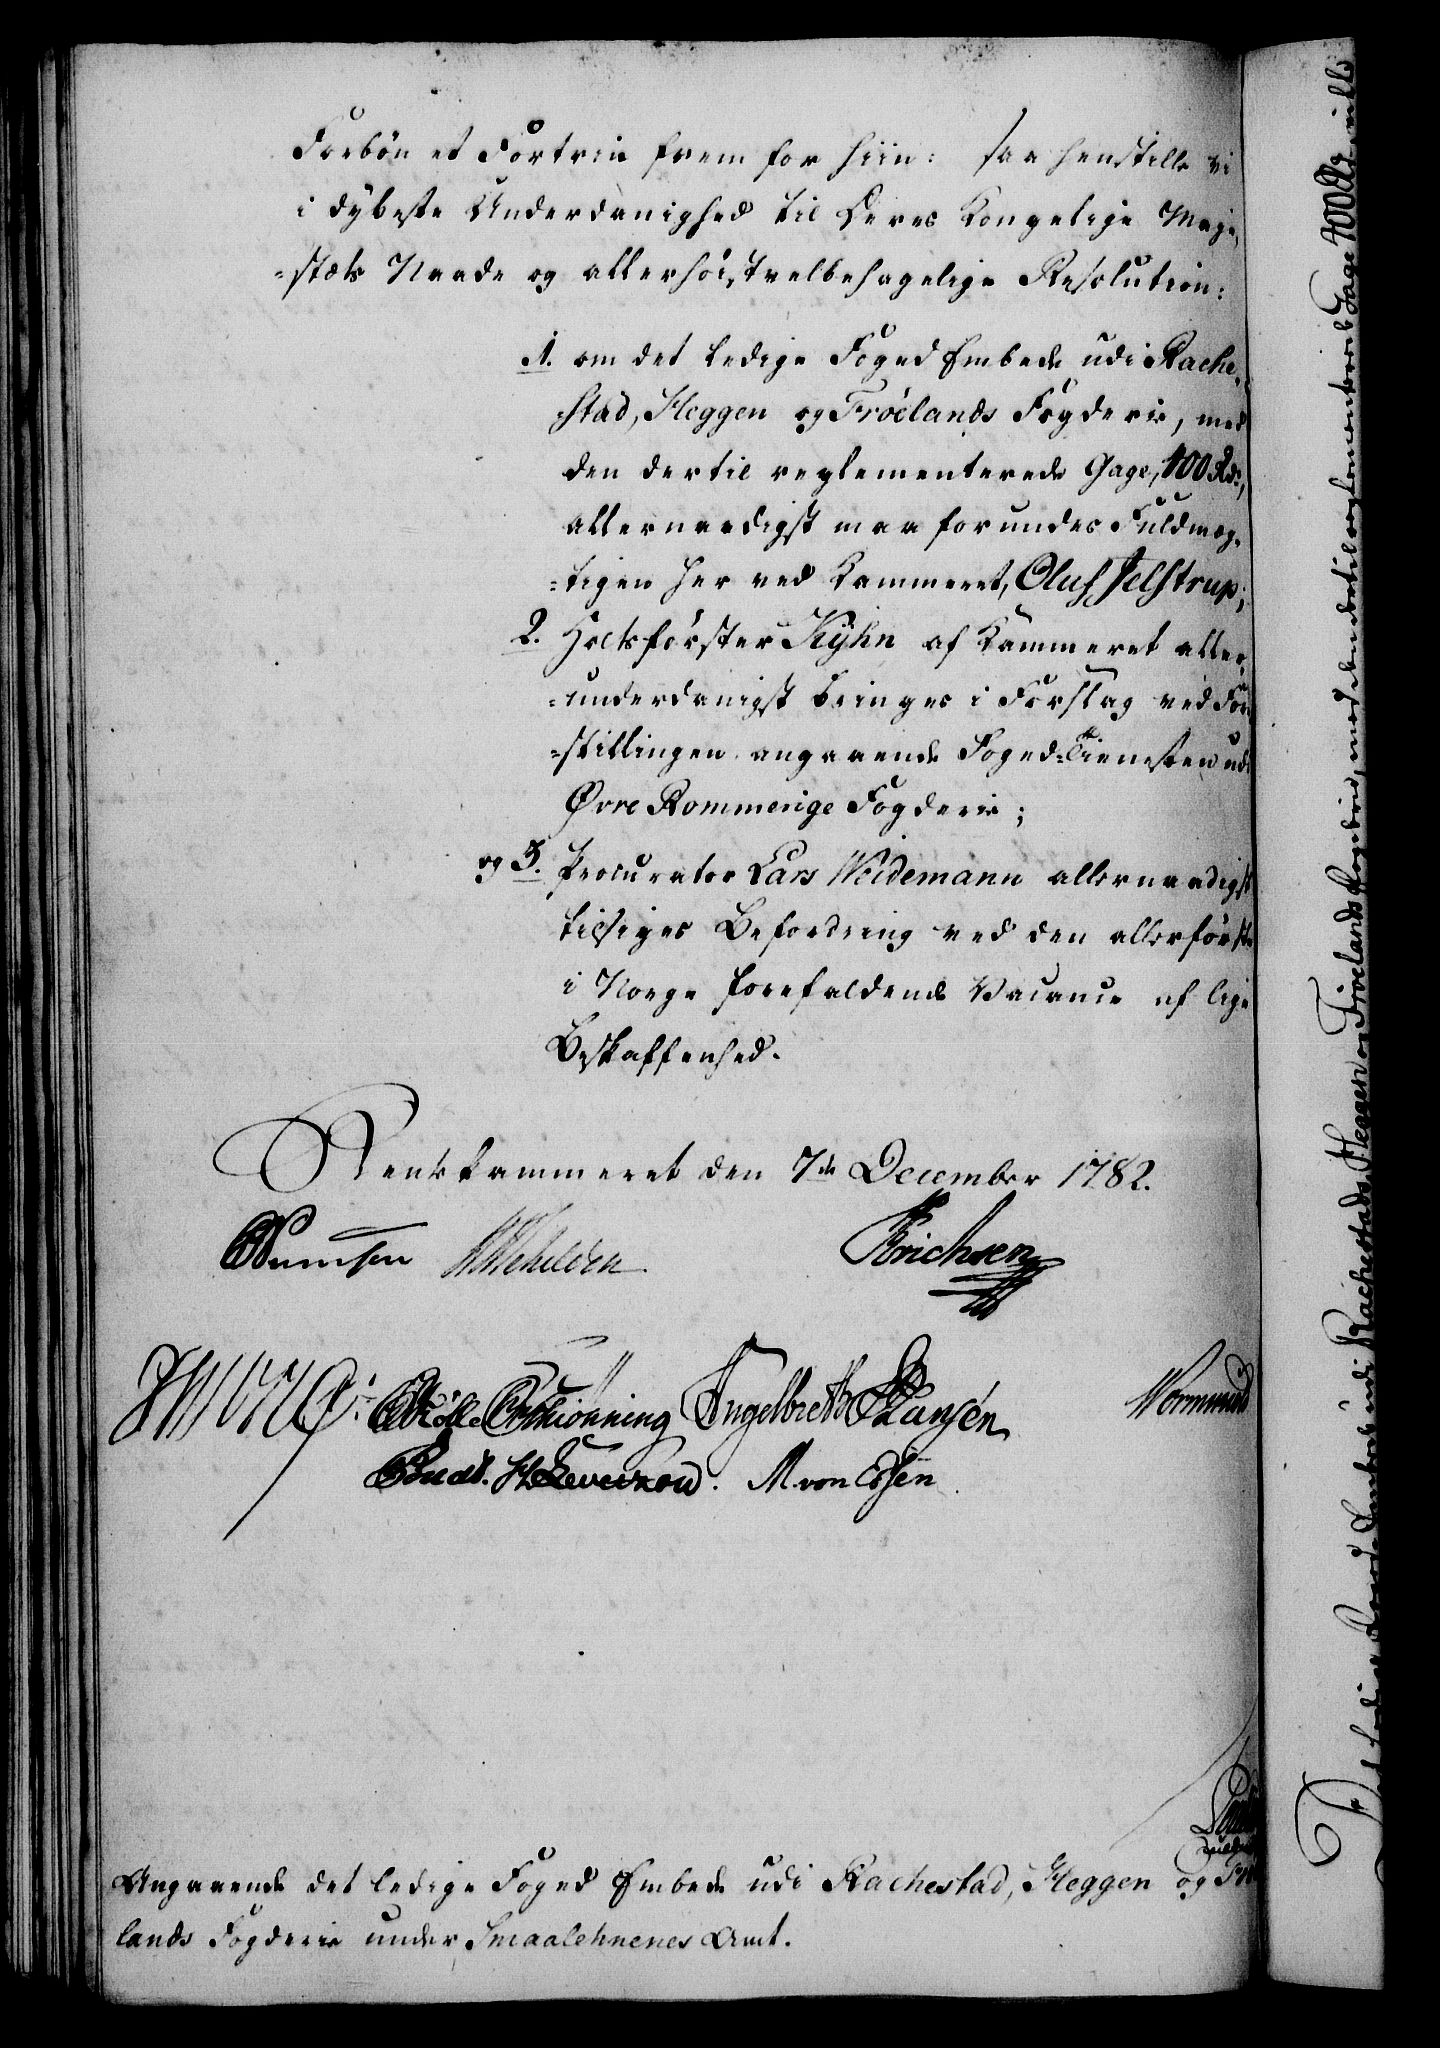 Forbøn et Fortrin frem for hiin: saa henstille vi
i dybeste Underdanighed til Deres Kongelige Maje-
-stæts Naade og allerhøistvelbehagelige Resolution:
1. om det ledige Foged Embede udi Rache-
-stad, Heggen og Frøelands Fogderie, med
den dertil reglementerede Gage, 400 Rdr,
allernaadigst maa forundes Fuldmæg-
-tigen her ved Kammeret, Oluf Jelstrup;
2. Holtsførster Kÿhn af Kammeret aller-
-underdanigst bringes i Forslag ved Fore
-stillingen angaaende Foged-Tienesten udi
Øvre Rommerige Fogderie;
og 3. Procurator Lars Weidemann allernaadigst
tilsiges Befordring ved den allerførste
i Norge forefaldende Vacance af lige
Beskaffenhed.
Rentekammeret den 7de December 1782.
Erichsen
Schiønning Engelbreth Hansen Wormund
Budtz. Leverkou. M von Essen
Angaaende det ledige Foged Embede udi Rachestad, Heggen og Frøe
lands Fogderie under Smaalehnenes Amt.
Det ledige Foged Embede udi Rachestad, Heggen og Frøelands Fogderie, med den dertil reglementerede Gage 400 Rdr, ville